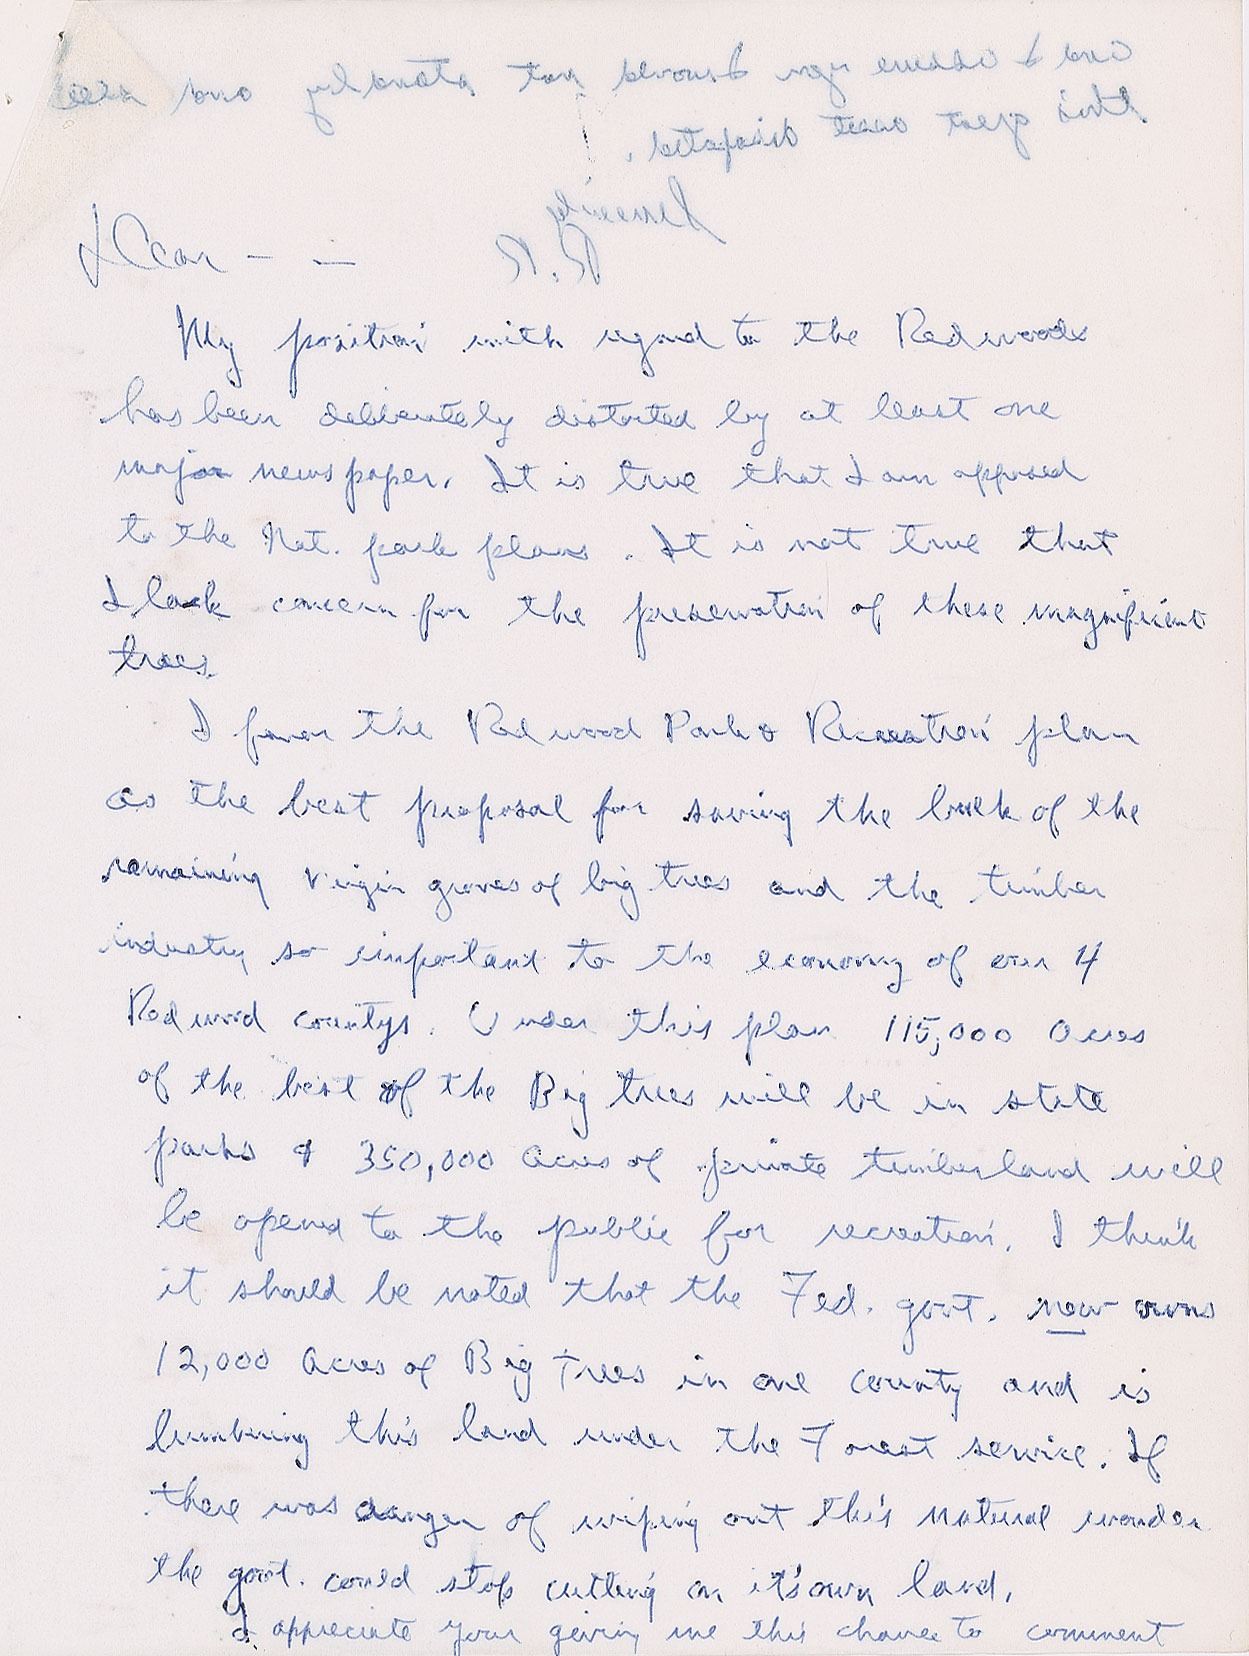 and I assure you I would not stand by and see
this great asset dissipated.
Sincerely
R.R.
Dear - —
My position with regard to the Redwoods
has been deliberately distorted by at least one
major newspaper. It is true that I am opposed
to the Nat. park plans. It is not true that
I lack concern for the preservation of these magnificent
trees.
I favor the Redwood Park & Recreation plan
as the best proposal for saving the bulk of the
remaining virgin groves of big trees and the timber
industry so important to the economy of our 4
Redwood countys. Under this plan 115,000 acres
of the best of the Big trees will be in state
parks & 350,000 acres of private timberland will
be opened to the public for recreation. I think
it should be noted that the Fed. govt. now owns
12,000 acres of Big Trees in one county and is
lumbering this land under the Forest service. If
there was danger of wiping out this natural wonder
the govt. could stop cutting on it's own land.
I appreciate your giving me this chance to comment